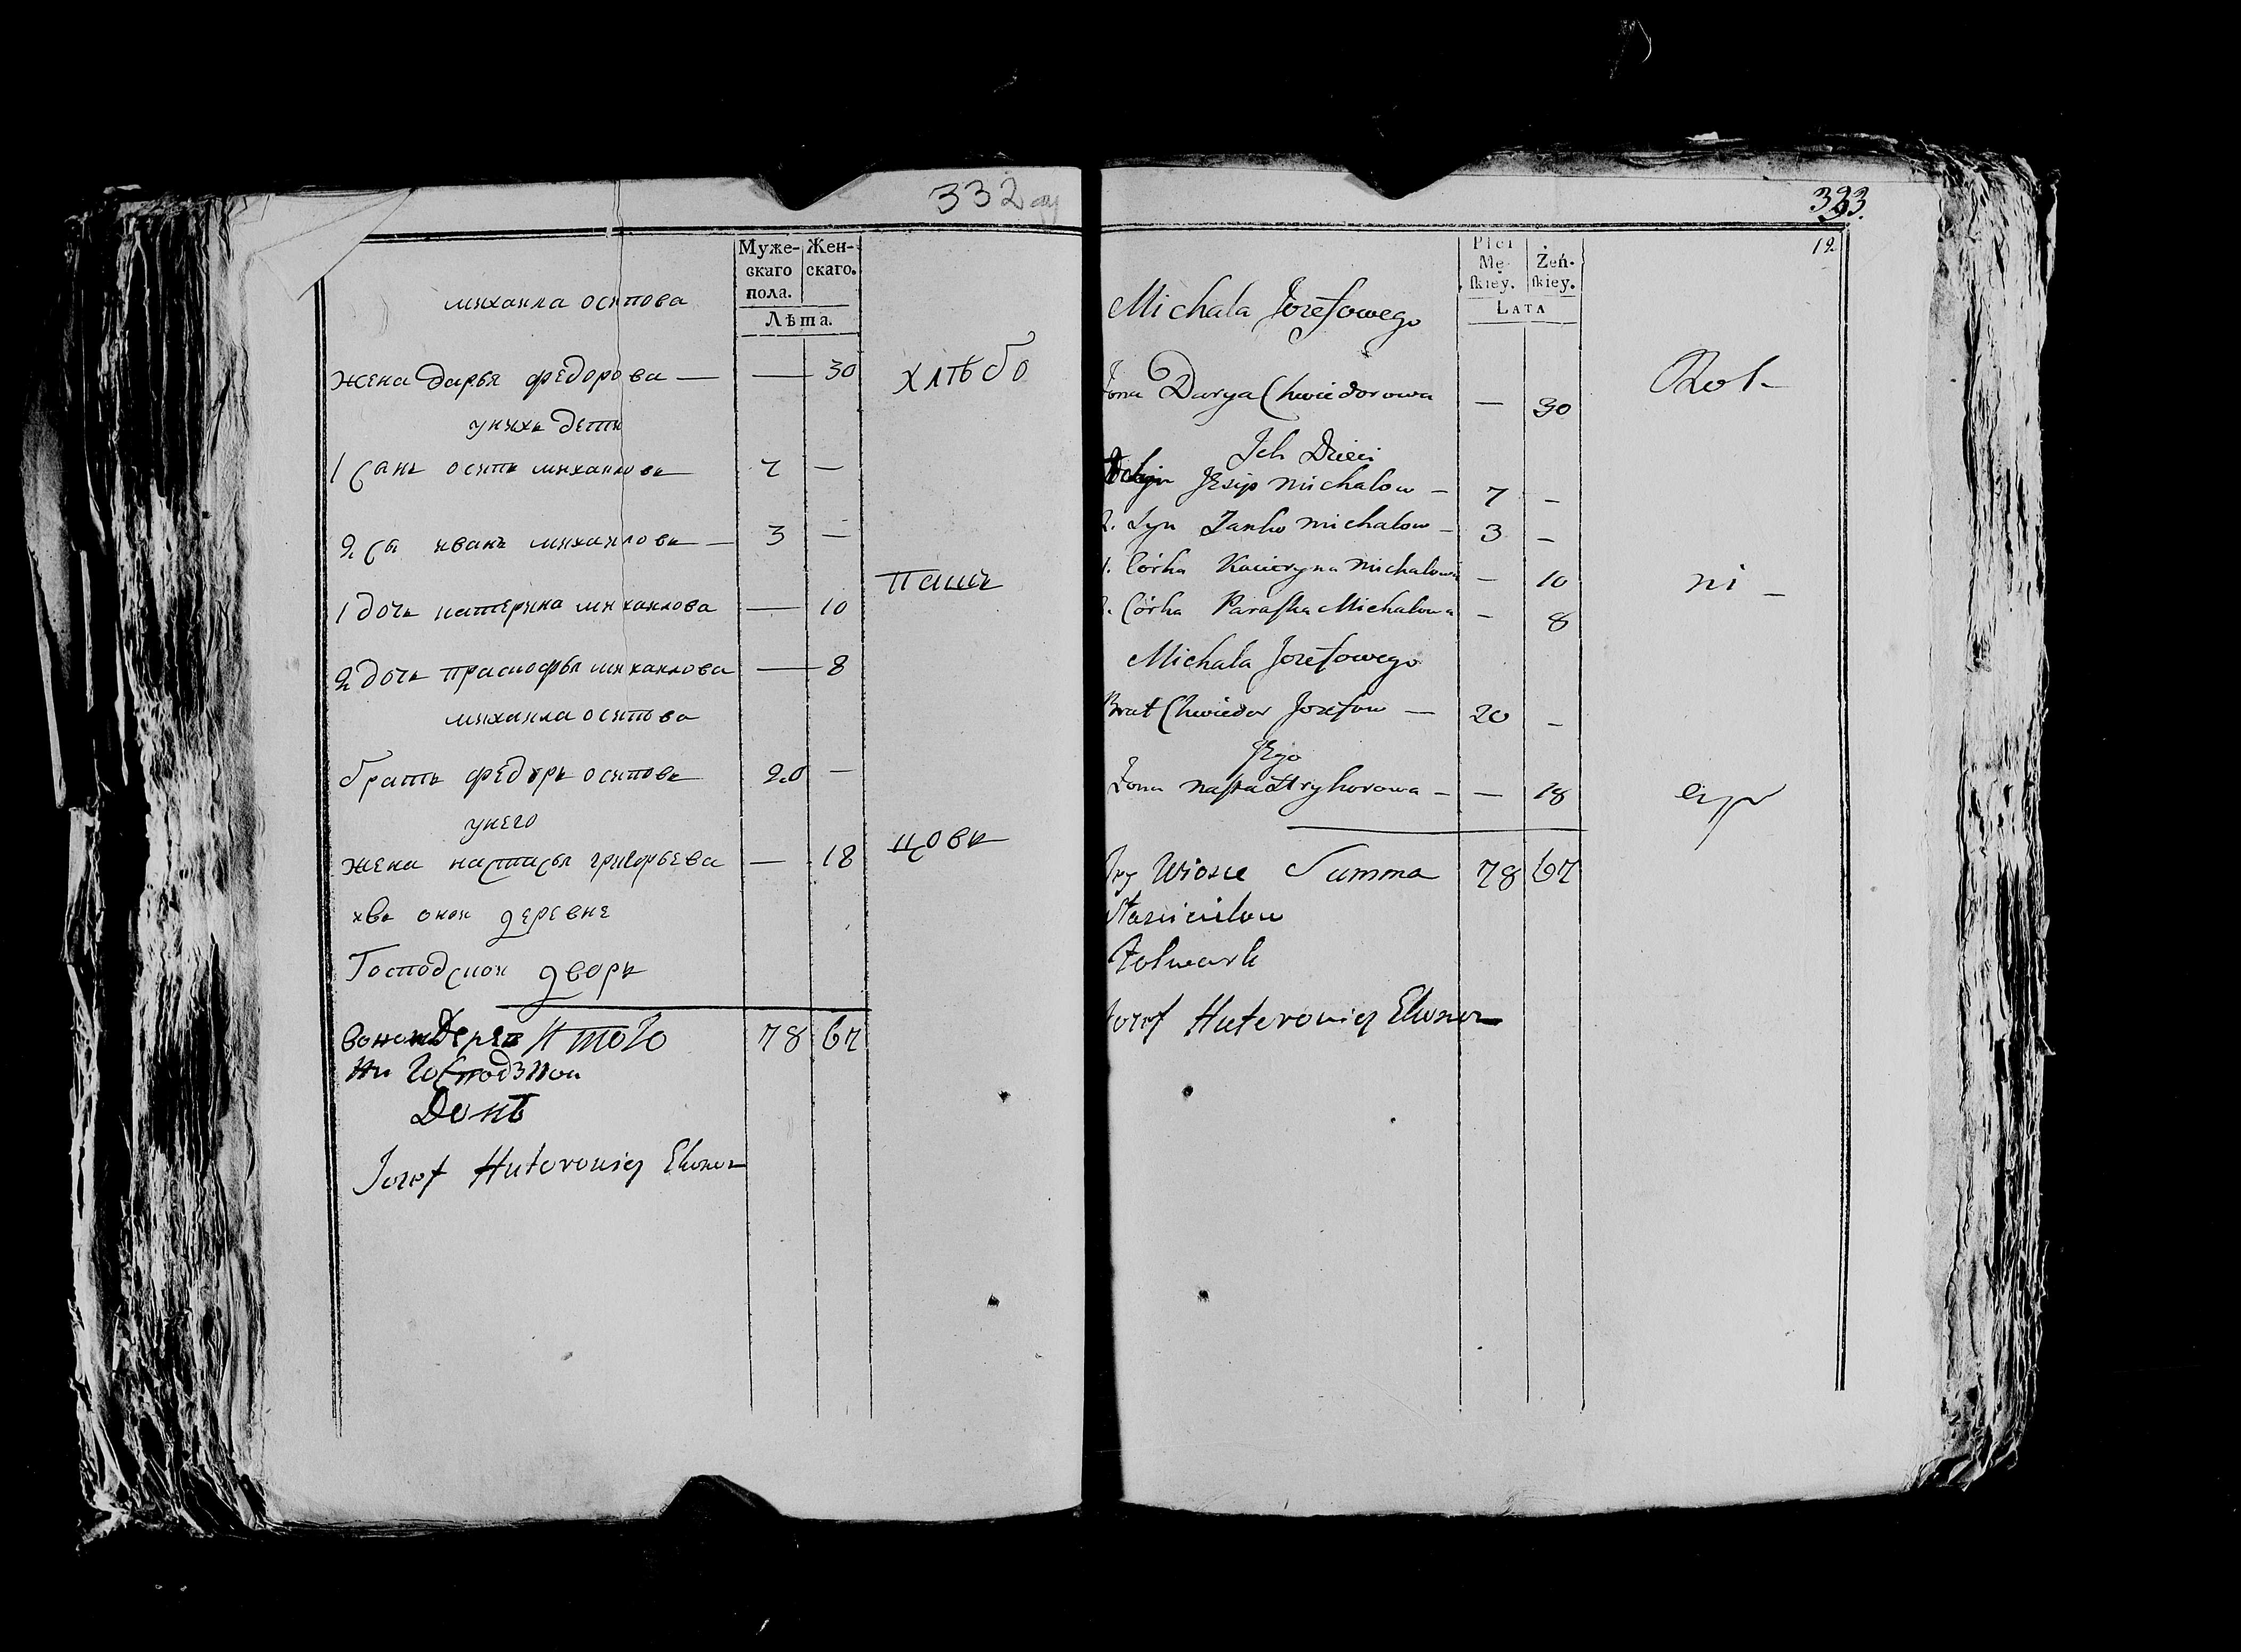 332
Муже-
скаго
пола.
Жен-
скаго.
Лѣта.
михаила осипова
жена дарья федорова — — 30
хлѣбо
унихъ дети
1 сынъ осипъ михаиловъ 7 —
2 сы иванъ михаиловъ — 3 —
пашъ
1 дочь катерина михаилова — 10
2 дочь прасиофья михаилова — 8
михаила осипова
братъ федоръ осиповъ 20 —
унего
жена настасья григорьева — 18
цовъ
онои деревне
Господскои дворъ
Итого 78 67
Jozef Huterowicz Ekonom
333.
12
Płci
Mę-
skiey.
Żeń-
skiey.
LATA
Michała Jozefowego
Żona Darya Chwiedorowa — 30
Rol-
Ich Dzieci
Jesip Michałow — 7 —
2. Syn Janko Michałow — 3 —
1. Córka Kacieryna Michałowa — 10
ni —
2. Córka Paraska Michałowa — 8
Michała Jozefowego
Brat Chwiedor Jozefow — 20 —
Jego
Żona Nasta Hryhorowa — — 18
cy
Wiosce Summa 78 67
Folwark
Jozef Huterowicz Ekonom